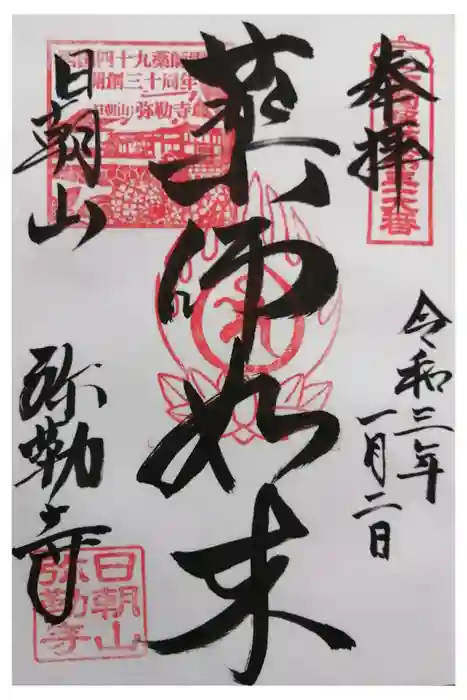 奉拝
令和三年
一月二日
薬師如来
日朝山
弥勒寺
四十九薬師
開創三十周年
日朝山 弥勒寺
日朝山
弥勒寺